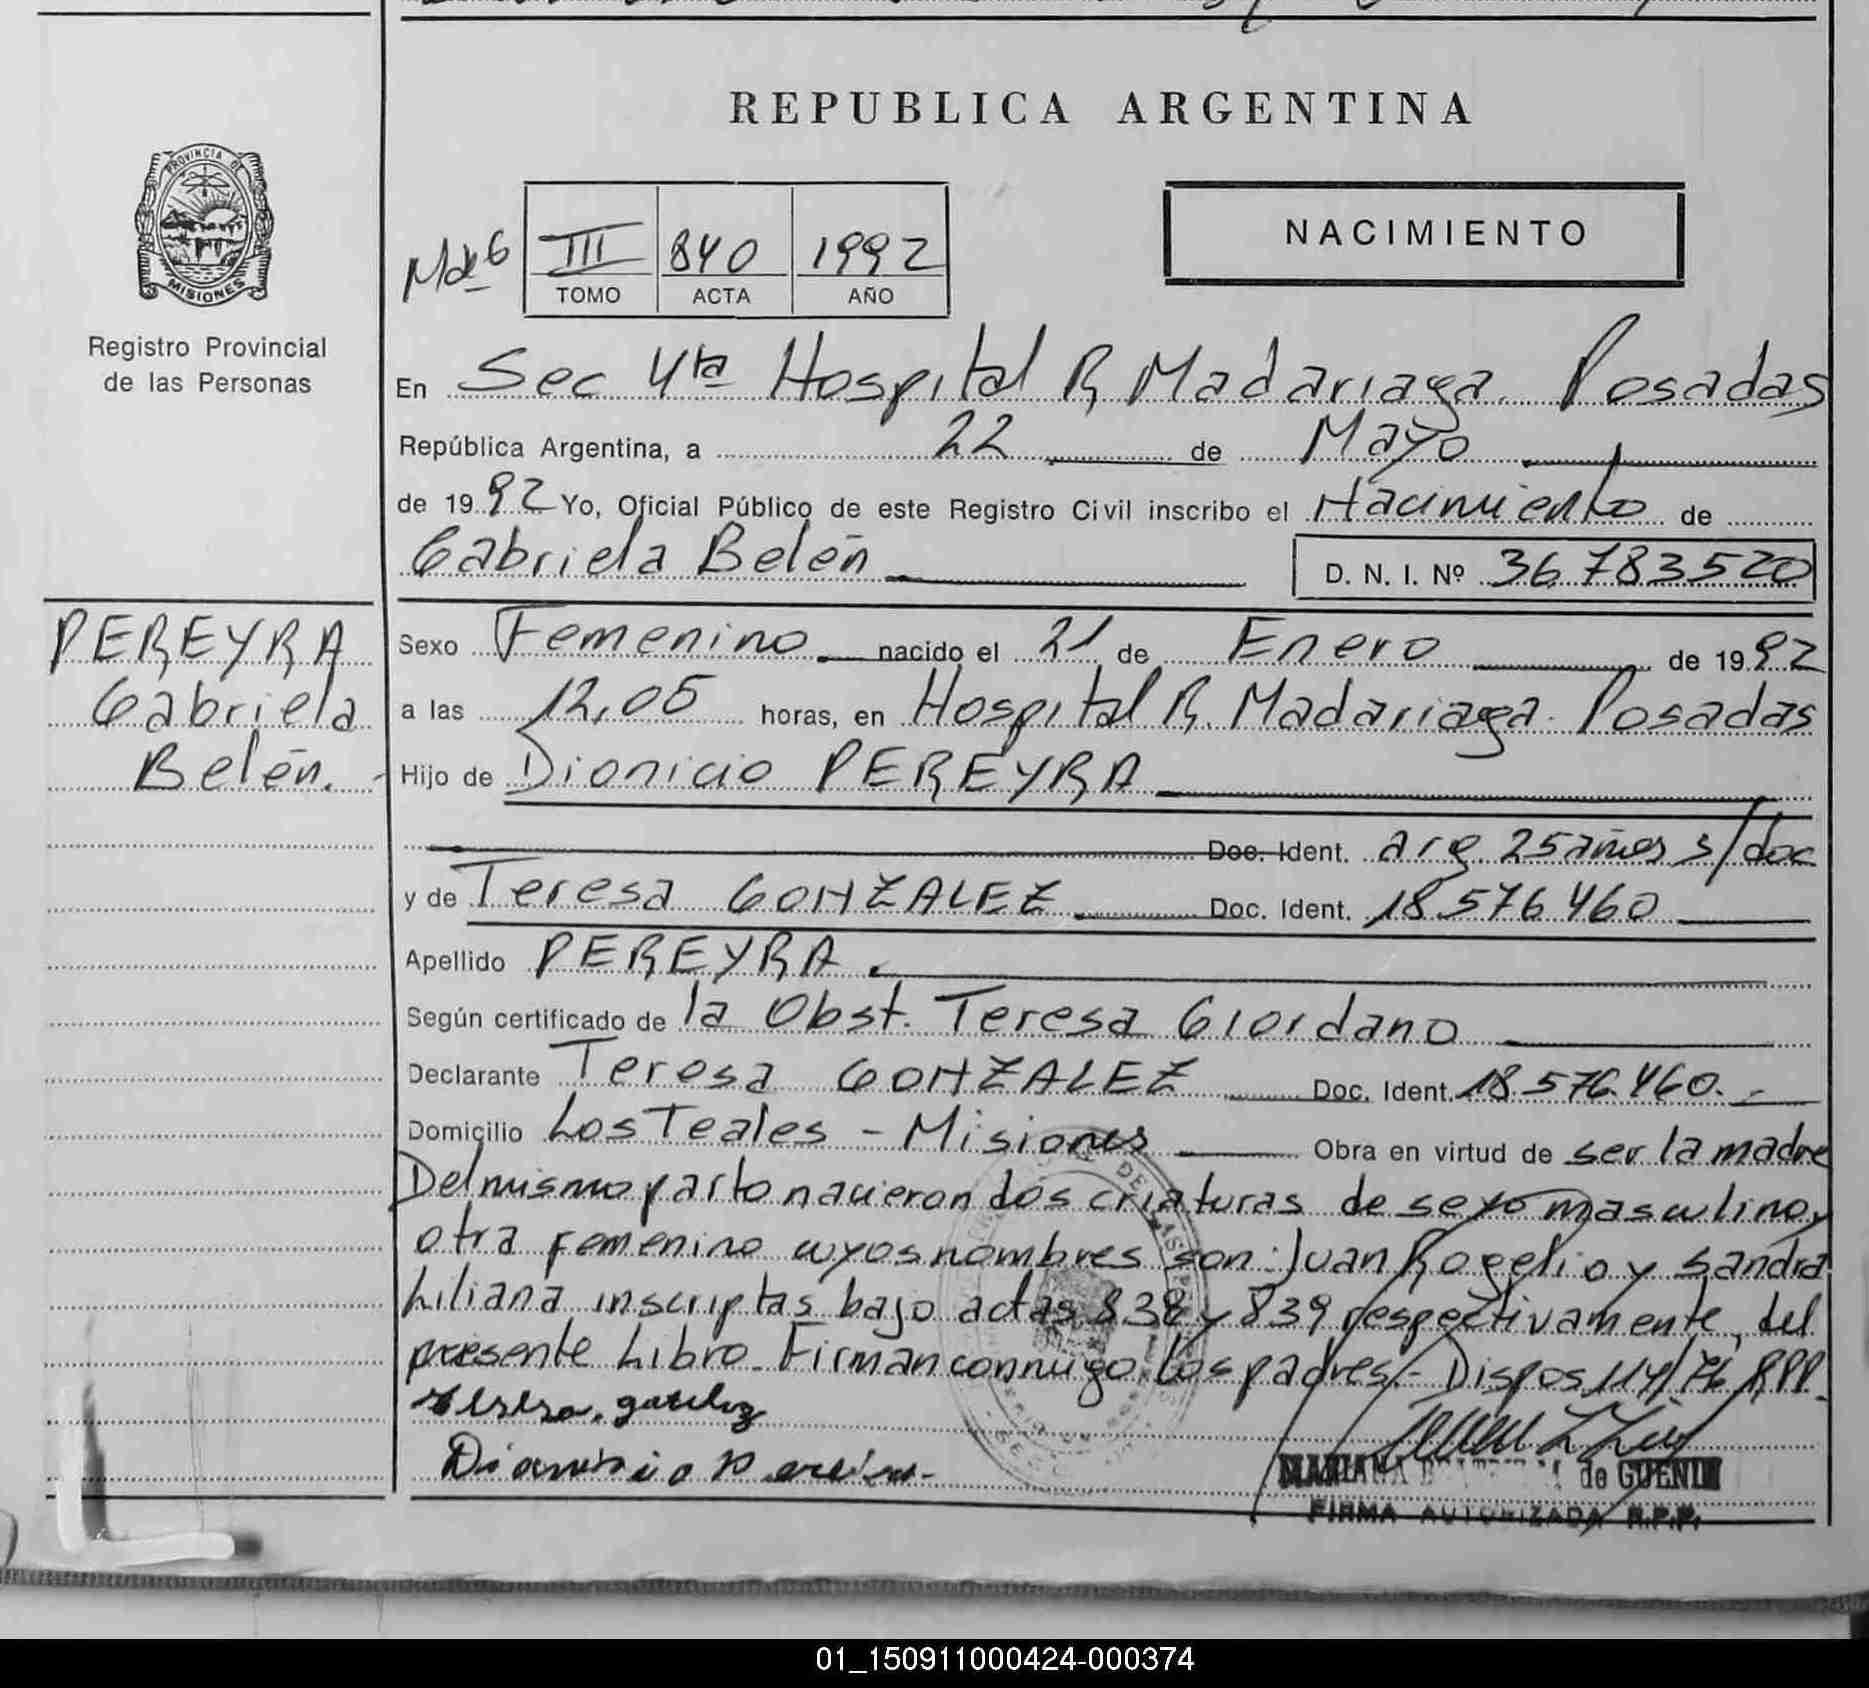 REPUBLICA ARGENTINA
PROVINCIA DE
MISIONES
Registro Provincial
de las Personas
III 840 1992
TOMO ACTA AÑO
NACIMIENTO
En Sec 4ta Hospital R Madariaga. Posadas
República Argentina, a 22 de Mayo
de 1992 Yo, Oficial Público de este Registro Civil inscribo el Nacimiento de
Gabriela Belén D. N. I. Nº 36 783520
PEREYRA
Gabriela
Belén.
Sexo Femenino nacido el 21 de Enero de 1992
a las 12,05 horas, en Hospital R. Madariaga. Posadas
Hijo de Dionicio PEREYRA
Doc. Ident. arg. 25 años s/doc
y de Teresa GONZALEZ Doc. Ident. 18.576.460
Apellido PEREYRA.
Según certificado de la Obst. Teresa Giordano
Declarante Teresa GONZALEZ Doc. Ident. 18.576.460.-
Domicilio Los Teales - Misiones Obra en virtud de ser la madre
Del mismo parto nacieron dos criaturas de sexo masculino y
otra femenino cuyos nombres son: Juan Rogelio y Sandra
Liliana inscriptas bajo actas 838 y 839 respectivamente, del
presente Libro. Firman conmigo los padres.- Dispos 114/76 RPP.
de GUENIN
FIRMA AUTORIZADA R.P.P.
01_150911000424-000374